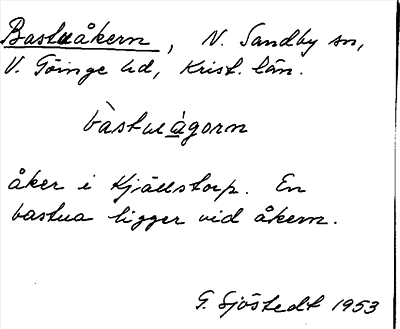 Bastuåkern, N. Sandby sn,
V. Göinge hd, Krist. län.
bàstuágorn
åker i Kjällstorp. En
bastua ligger vid åkern.
G. Sjöstedt 1953